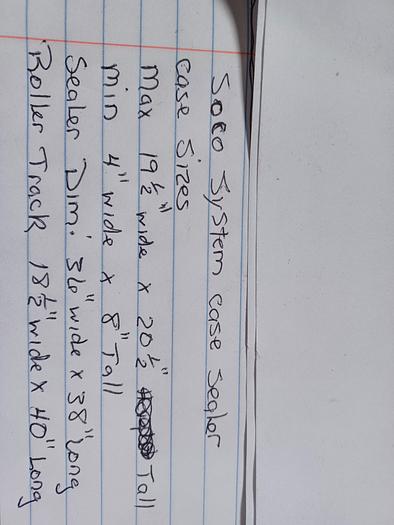 Soco System case sealer
case sizes
Max 19 1/2" wide x 20 1/2" Tall
min 4" wide x 8" Tall
Sealer Dim: 36" wide x 38" Long
Roller Track 18 1/2" wide x 40" Long